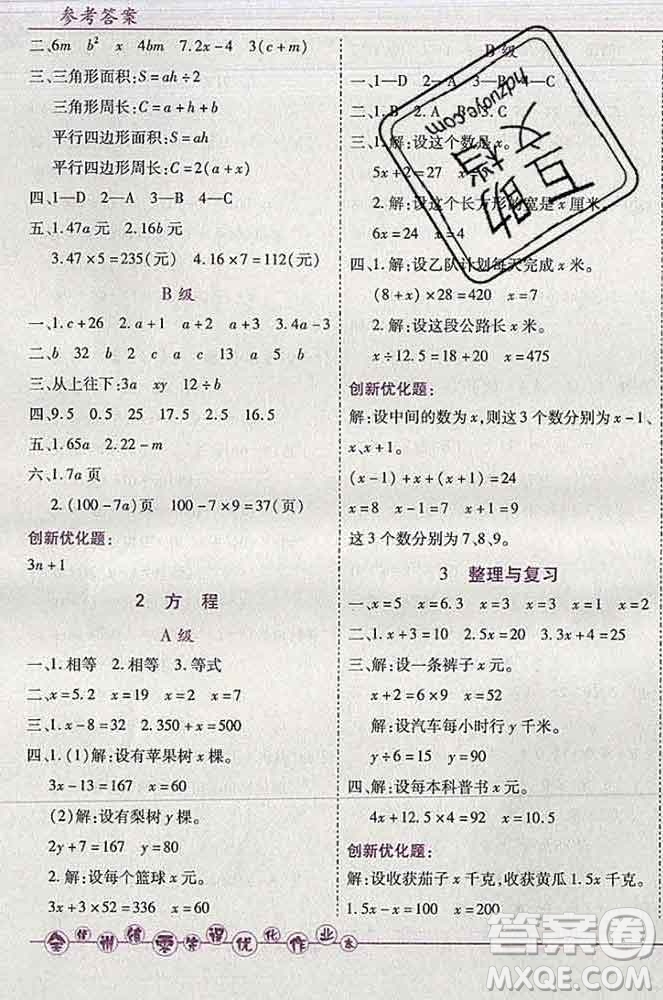 参考答案
二、6m b² x 4bm 7.2x-4 3(c+m)
三、三角形面积:S=ah÷2
三角形周长:C=a+h+b
平行四边形面积:S=ah
平行四边形周长:C=2(a+x)
四、1—D 2—A 3—B 4—C
五、1.47a元 2.16b元
3.47×5=235(元) 4.16×7=112(元)
B级
一、1.c+26 2.a+1 a+2 a+3 3.4a-3
二、b 32 b 2 c a c a b
三、从上往下:3a xy 12÷b
四、9.5 0.5 25 2.5 16.5
五、1.65a 2.22-m
六、1.7a页
2.(100-7a)页 100-7×9=37(页)
创新优化题:
3n+1
2 方程
A级
一、1.相等 2.相等 3.等式
二、x=5.2 x=19 x=2 x=7
三、1.x-8=32 2.350+x=500
四、1.(1)解:设有苹果树x棵。
3x-13=167 x=60
(2)解:设有梨树y棵。
2y+7=167 y=80
2.解:设每个篮球x元。
3x+3×52=336 x=60
B级
一、1—D 2—A 3—B 4—C
二、1.B 2.A 3.C
三、1.解:设这个数是x。
5x+2=27 x=5
2.解:设这个长方形的宽是x厘米。
6x=24 x=4
四、1.解:设乙队计划每天完成x米。
(8+x)×28=420 x=7
2.解:设这段公路长x米。
x÷12.5=18+20 x=475
创新优化题:
解:设中间的数为x,则这3个数分别为x-1、
x、x+1。
(x-1)+x+(x+1)=24
x=8 x-1=7 x+1=9
这3个数分别为7、8、9。
3 整理与复习
一、x=5 x=6.4 x=3 x=3 x=1 x=2
二、1.C 2.A 3.B 4.C 5.B
三、解:设一条裤子x元。
x+2=6×9 x=52
解:设汽车每小时行y千米。
y÷6=13 y=78
四、解:设每本科普书x元。
4x+12.5×4=92 x=10.5
创新优化题:
解:设收获茄子x千克,收获黄瓜1.5x千克。
1.5x-x=450 x=900
互助文档
hdzuoye.com
答案圈
MXQE.COM